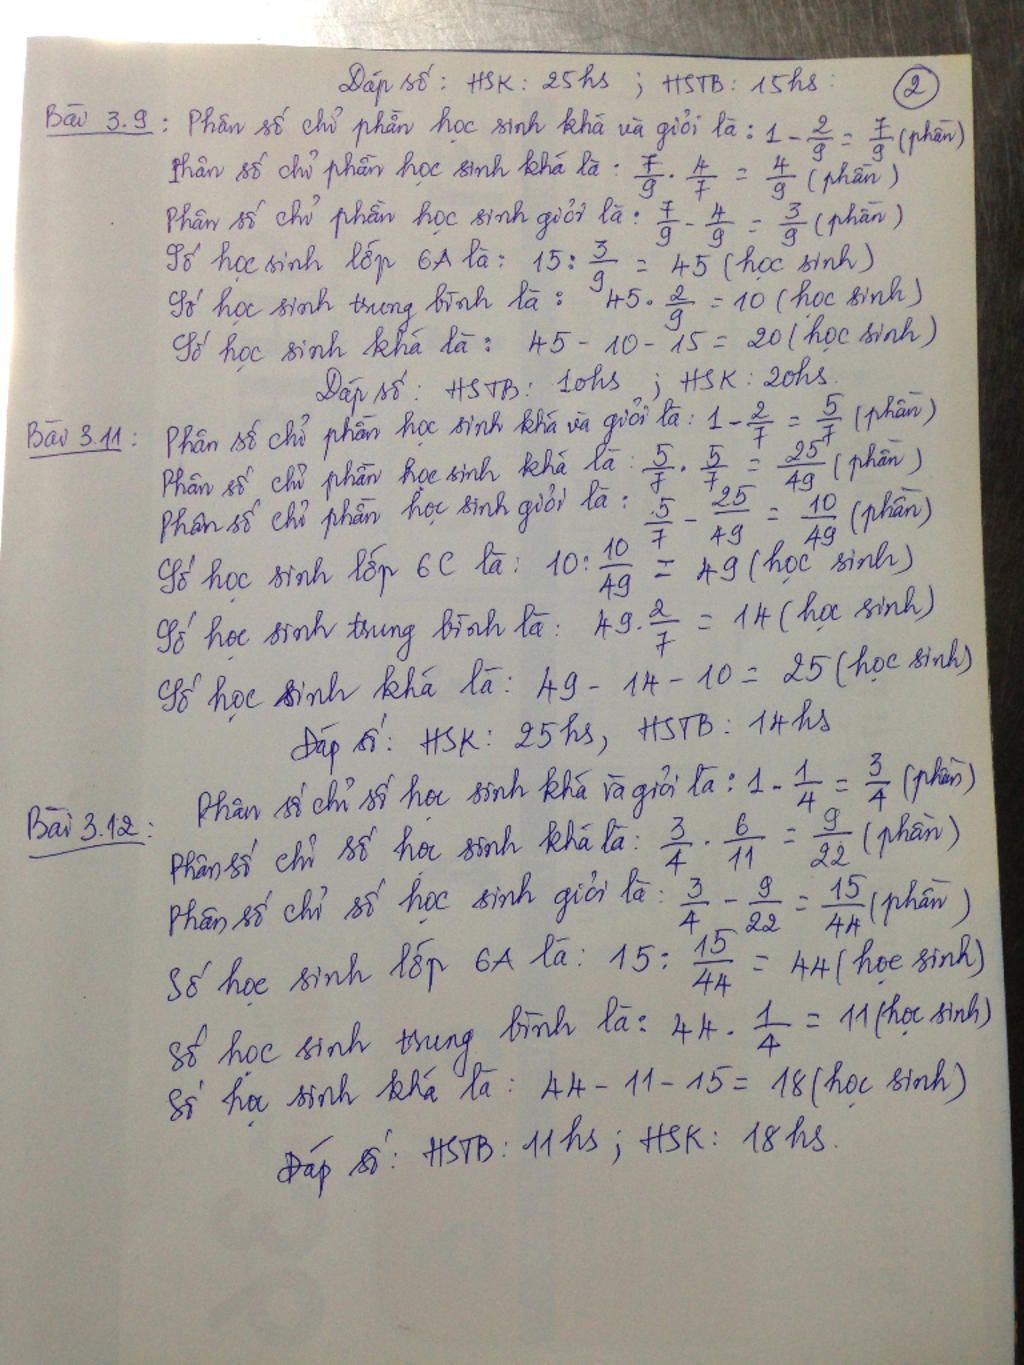 Đáp số: HSK: 25hs ; HSTB: 15hs.
2
Bài 3.9: Phân số chỉ phần học sinh khá và giỏi là: 1 - 2/9 = 7/9 (phần)
Phân số chỉ phần học sinh khá là: 7/9 . 4/7 = 4/9 (phần)
Phân số chỉ phần học sinh giỏi là: 7/9 - 4/9 = 3/9 (phần)
Số học sinh lớp 6A là: 15 : 3/9 = 45 (học sinh)
Số học sinh trung bình là: 45 . 2/9 = 10 (học sinh)
Số học sinh khá là: 45 - 10 - 15 = 20 (học sinh)
Đáp số: HSTB: 10hs ; HSK: 20hs.
Bài 3.11: Phân số chỉ phần học sinh khá và giỏi là: 1 - 2/7 = 5/7 (phần)
Phân số chỉ phần học sinh khá là: 5/7 . 5/7 = 25/49 (phần)
Phân số chỉ phần học sinh giỏi là: 5/7 - 25/49 = 10/49 (phần)
Số học sinh lớp 6C là: 10 : 10/49 = 49 (học sinh)
Số học sinh trung bình là: 49 . 2/7 = 14 (học sinh)
Số học sinh khá là: 49 - 14 - 10 = 25 (học sinh)
Đáp số: HSK: 25hs, HSTB: 14hs
Bài 3.12: Phân số chỉ số học sinh khá và giỏi là: 1 - 1/4 = 3/4 (phần)
Phân số chỉ số học sinh khá là: 3/4 . 6/11 = 9/22 (phần)
Phân số chỉ số học sinh giỏi là: 3/4 - 9/22 = 15/44 (phần)
Số học sinh lớp 6A là: 15 : 15/44 = 44 (học sinh)
Số học sinh trung bình là: 44 . 1/4 = 11 (học sinh)
Số học sinh khá là: 44 - 11 - 15 = 18 (học sinh)
Đáp số: HSTB: 11hs ; HSK: 18hs.